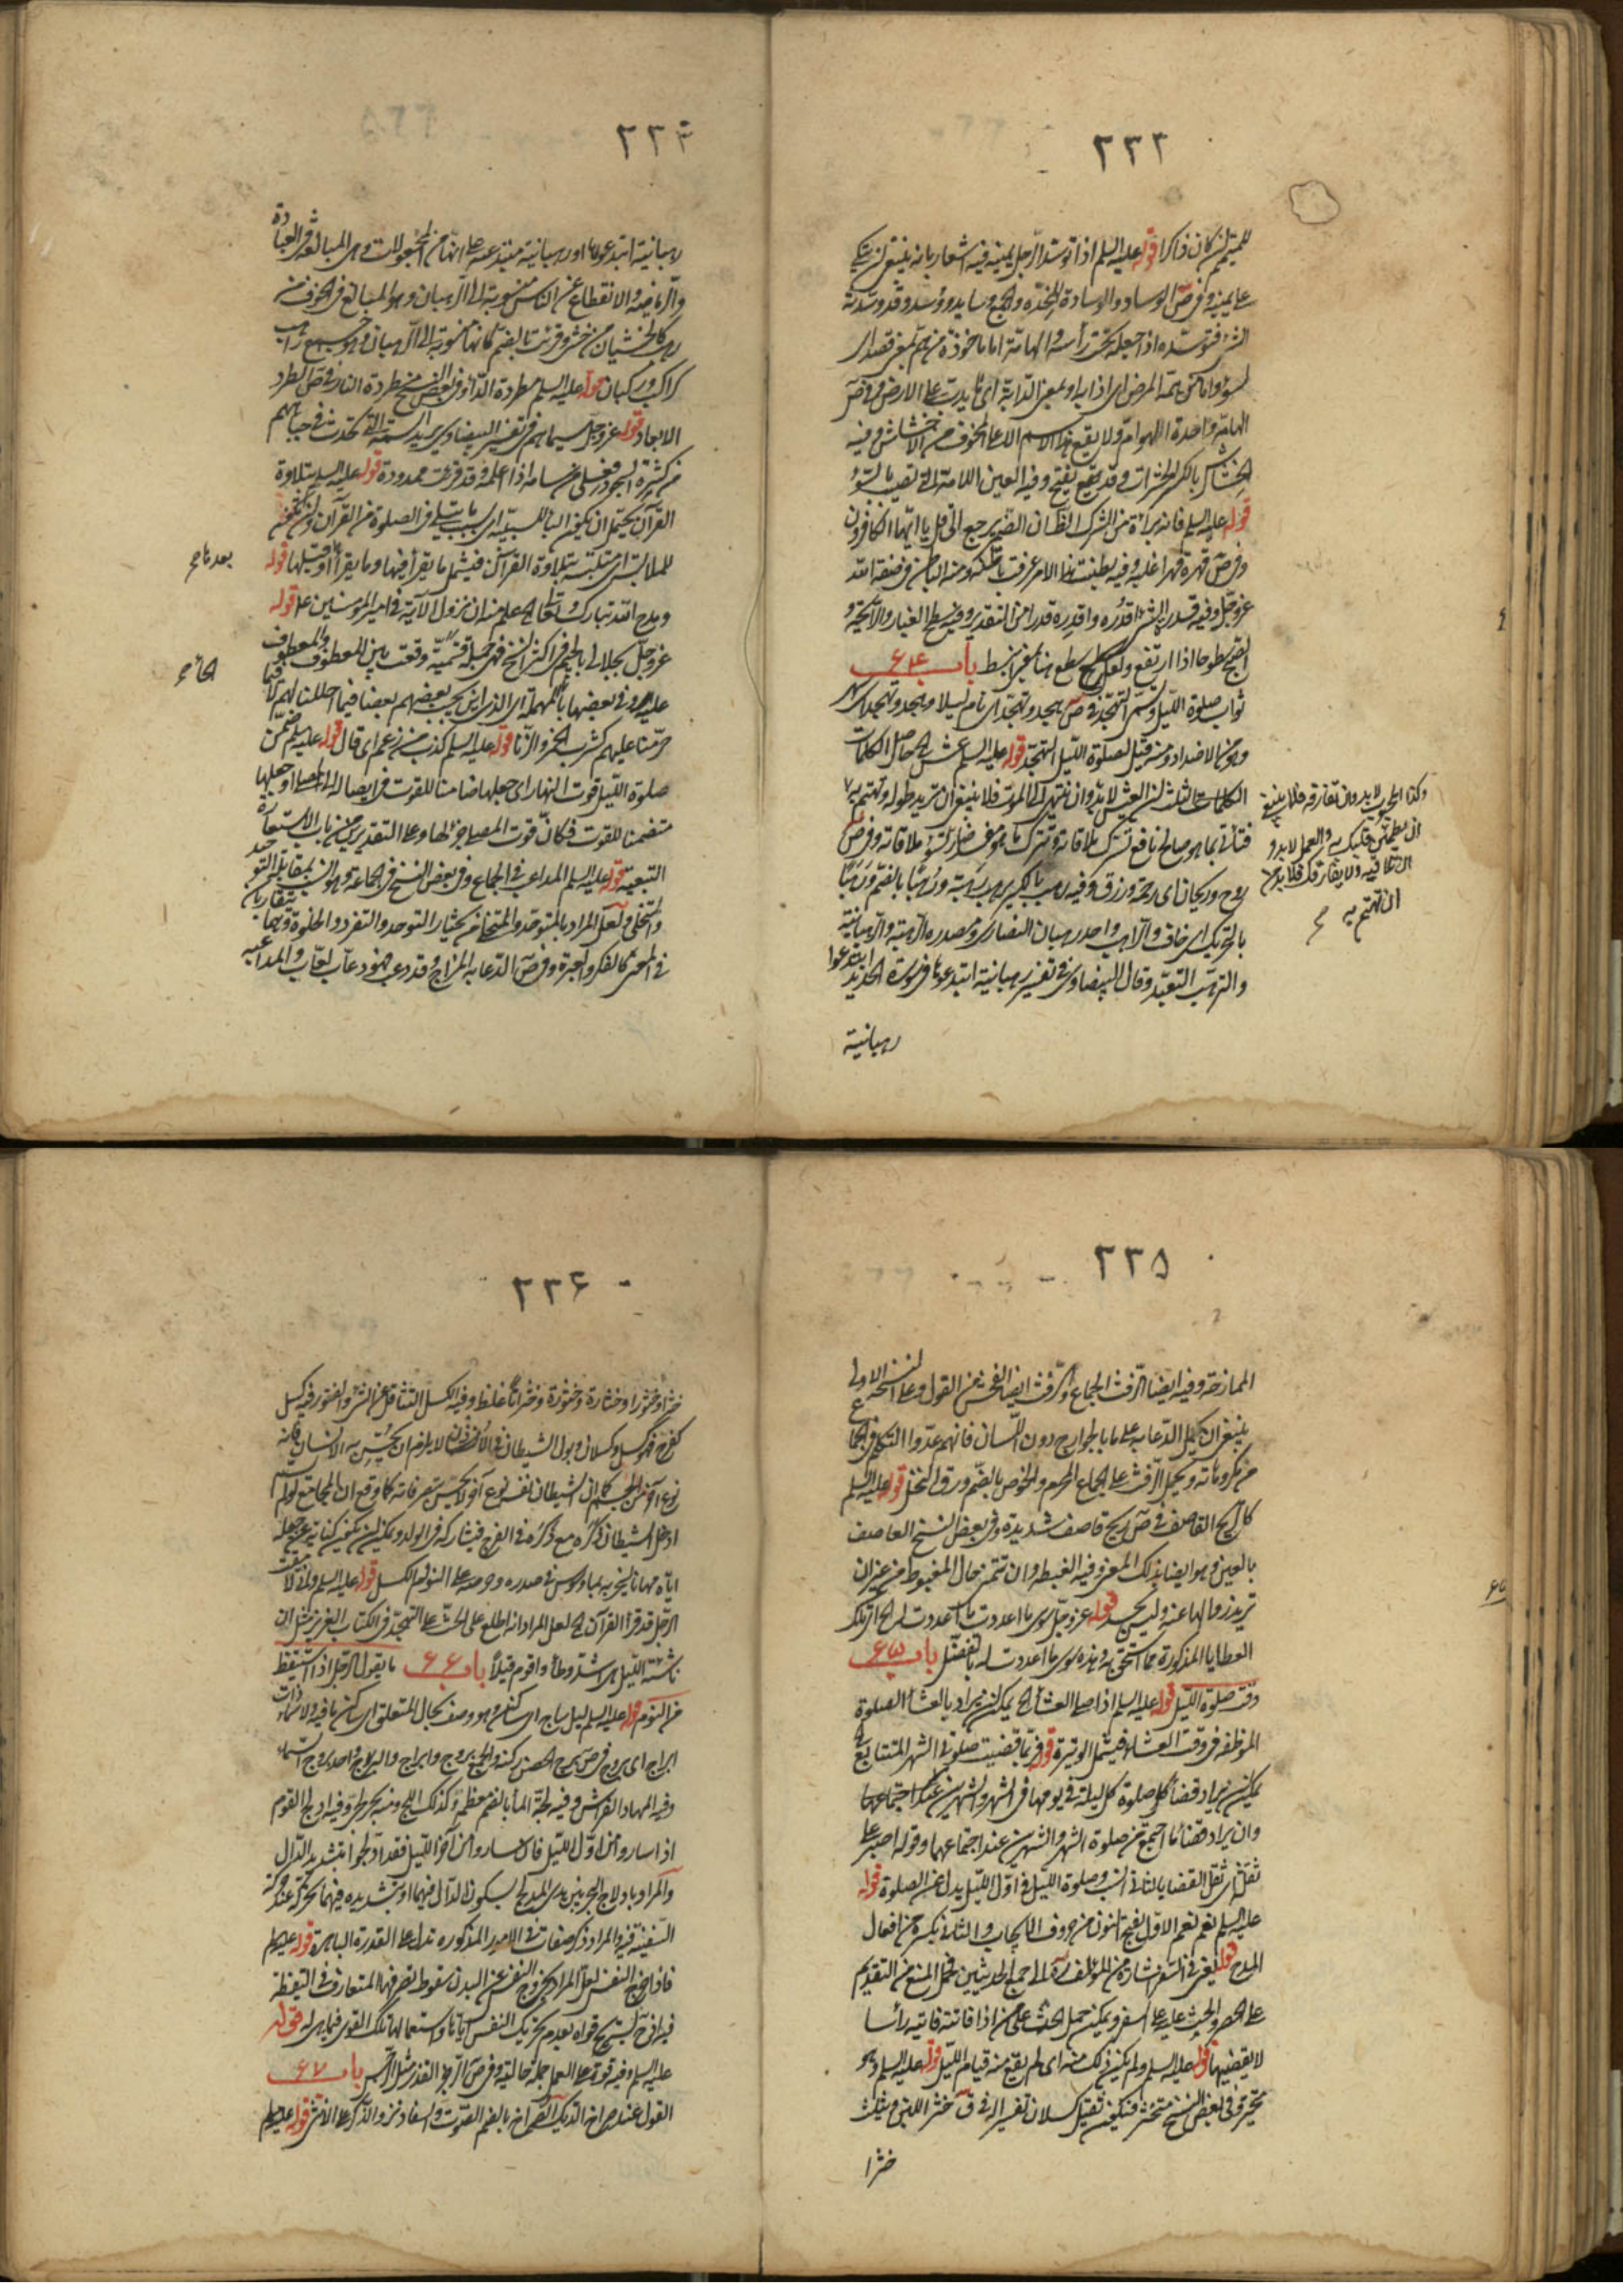 ٢٣٣
للمیّت لمن کان ذاکرا قوله علیه السلم اذا توسّد الرجل یمینه فیه اشعار بانه ینبغی ان یتکی
علی یمینه وفی ص الوساد والوسادة المخدّه والجمع وسایدو وُسد وقد وسّدته
الشئ فتوسّده اذا جعله تحت رأسه والهامّة اما ماخوذة من همّ بمعنی قصد ای
لسوء واما من همّه المرض ای اذابه او بمعنی الدابّة ای ما یدبّ علی الارض وفی ص
الهامّه واحدة الهوامّ ولا یقع هذا الاسم الا علی المخوف من الاحناش وفیه
الخشاش بالکسر الحشرات وقد یفتح وفیه العین اللامة التی تصیب بالسوء
قوله علیه السلم فانه براءة من الشرک الظ ان الضمیر یرجع الی قل یا ایّها الکافرون
وفی ص قهره قهرا غلبه وفیه بطنت هذا الامر عرفت باطنه ومنه الباطن فی صفة الله
عزّ وجلّ وفیه قدرت الشئ اقدُره واقدِره قدرا من التقدیر وفیه سطع الغبار والرایحة و
الصبح سطوعا اذا ارتفع ولعلّ سطع هنا بمعنی انبسط باب ۶۴
ثواب صلوة اللیل وتسمّی التهجّد فی ص هجد وتهجّد ای نام لیلا وهجد وتهجّد ای سهر
وهو من الاضداد ومنه قیل لصلوة اللیل التهجّد قوله علیه السلم عش الخ حاصل الکلمات
الکلمات الثلث ان العیش لا بدّ وان ینتهی الی الموت فلا ینبغی ان ترید طوله وتهتم به
فتأت بما هو صالح نافع تسرّک ملاقاته وتترک ما هو غیر ضارّ تسوء ملاقاته وفی ص
روح وریحان ای رحمة ورزق وفیه رهب بالکسر یرهب رهبة ورُهبا بالضم ورَهَبا
بالتحریک ای خاف والراهب واحد رهبان النصاری ومصدره الرهبة والرهبانیة
والترهّب التعبّد وقال البیضاوی فی تفسیر رهبانیة ابتدعوها فی سورة الحدید ابتدعوا
رهبانیة
وکذا الحبیب لا بد وان تفارقه فلا ینبغی
ان یطمئن قلبک به والعمل لا بد و
ان تلاقیه ولا یفارقک فلا بدّ
ان تهتم به صح
٢٣۴
رهبانیة ابتدعوها او رهبانیة مبتدعة علی انها من المجعولات وهی المبالغة فی العبادة
والریاضة والانقطاع عن الناس منسوبة الی الرهبان وهو المبالغ فی الخوف من
رهب کالخشیان من خشی وقرئت بالضم کانها منسوبة الی الرهبان وهو جمع راهب
کراکب ورکبان قوله علیه السلم مطردة الداء وفی بعض النسخ مطردة النار فی ص الطرد
الابعاد قوله عزّ وجلّ سیماهم فی تفسیر البیضاوی یرید السمة التی تحدث فی جباههم
من کثرة السجود فعلی من سامه اذا اعلمه وقد قرئت ممدودة قوله علیه السلم بتلاوة
القرآن یحتمل ان یکون الباء للسببیّة ای بسبب ما یتلی فی الصلوة من القرآن وان تکون
للملابسة ای متلبّسة بتلاوة القرآن فیشمل ما یقرأ فیها وما یقرأ او قبلها قوله
ومدح الله تبارک وتعالی الخ علم منه ان نزول الآیة فی امیر المؤمنین ع قوله
عزّ وجلّ بجلالی بالجیم فی اکثر النسخ فهی جملة قسمیّة وقعت بین المعطوف والمعطوف
علیه وفی بعضها بالمهملة ای الذین یحبّ بعضهم بعضا فیما احللنا لهم لا فیما
حرّمنا علیهم کشرب الخمر والزنا قوله علیه السلم کذب من زعم ای قال قوله علیه السلم ضمّن
صلوة اللیل قوت النهار ای جعلها ضامنا للقوت فی ایصاله الی المصلی او جعلها
متضمّنا للقوت فکانّ قوت المصلی جزؤها وعلی التقدیرین من باب الاستعارة
التبعیة قوله علیه السلم المداعب فی الجماع وفی بعض النسخ فی الجماعة وهو انسب بمقابله المتوحد
والمتخلّی ولعلّ المراد بالمتوحّد والمتخلّی من یختار التوحد والتفرد والخلوة وهما متقاربان
فی المعنی بالفکر والعبرة وفی ص الدعابة المزاح وقد دعب فهو دعّاب لعّاب والمداعبة
بعدها صح
الخ صح
٢٣۵
الممازحة وفیه ایضا الرفث الجماع والرفث ایضا الفحش من القول وعلی النسخة الاولی
ینبغی ان یحمل الدعابة علی ما بالجوارح دون اللسان فانهم عدّوا التکلم فی الجماع
من مکروهاته ویحمل الرفث علی الجماع المحرم والخوص بالضم ورق النخل قوله علیه السلم
کالریح القاصف فی ص ریح قاصف شدیدة وفی بعض النسخ العاصف
بالعین وهو ایضا بذلک المعنی وفیه الغبطة وان تتمنی حال المغبوط من غیر ان
ترید زوالها عنه ولیس بحسد قوله عزّ وجلّ سوی ما اعددت ما اعددت له الخ ان تلک
العطایا المذکورة مما استحق به وهذه سوی ما اعددت له بالتفضّل باب ۶۵
وقت صلوة اللیل قوله علیه السلم اذا صلی العشاء الخ یمکن ان یراد بالعشاء الصلوة
الموظفة فی وقت العشاء فیشمل الوتیرة قوله فربّما قضیت صلوة الشهر المتتابع
یمکن ان یراد قضاء کل صلوة کل لیلة فی یومها فی الشهر والشهرین عند اجتماعها
وان یراد قضاء ما اجتمع من صلوة الشهر والشهرین عند اجتماعهما وقوله اصبر علی
ثقلی ای ثقل القضا بالثانی انسب وصلوة اللیل فی اوّل اللیل بدل عن الصلوة قوله
علیه السلم نعم نعم الاوّل بفتح النون من حروف الایجاب والثانی بکسره من افعال
المدح قوله یعنی فی السفر اشارة من المؤلف ره الی جمع الحدیثین بحمل المنع من التقدیم
علی الحضر والحث علیه علی السفر ویمکن حمل الحث علی من اذا فاتته فاتته رأسا
لا یقضیها قوله علیه السلم ولم یکن ذلک منه ای لم یقع منه قیام اللیل قوله علیه السلم وهو
متحیّر وفی بعض النسخ متخثر فتکون ثقیل کسلان تفسیر له فی ق خثر اللبن ویثلث
خثرا
٢٣۶
خثرا وخثورا وخثارة وخثورة وخثرانا غلظ وفیه الکسل التثاقل عن الشئ والفتور فیه کسل
کفرح فهو کسِل وکسلان وبول الشیطان فی الاذن لا یلزم ان یحسّ به الانسان فانه
نوع آخر من الجسم کما ان الشیطان نفس نوع آخر ولا یحسّ بتصرفاته کما وقع ان المجامع لو لم یسمّ
ادخل الشیطان ذکره مع ذکره فی الفرج فیشارکه فی الولد ویمکن ان یکون کنایة عن جعله
ایّاه مهانا لیخربه بما وسوس فی صدره وحرصه علی النوم والکسل قوله علیه السلم وانی لامقت
الرجل قد قرأ القرآن الخ لعل المراد انه اطلع علی الحث علی التهجد فی الکتاب العزیز مثل ان
ناشئة اللیل هی اشد وطأ واقوم قیلا باب ۶۶ ما یقول الرجل اذا استیقظ
من النوم قوله علیه السلم لیل ساج ای ساکن وهو وصف بحال المتعلق ای ساکن ما فیه ولا سماء ذات
ابراج ای بروج فی ص برج الحصن رکنه والجمع بروج وابراج والبرج واحد بروج السماء
وفیه المهاد الفراش وفیه لجّة الماء بالضم معظمه وکذلک اللجّ ومنه بحر لجّی وفیه ادلج القوم
اذا ساروا من اوّل اللیل فان ساروا من آخر اللیل فقد ادّلجوا بتشدید الدال
والمراد بادلاج البحر بین یدی المدلج بسکون الدال فیهما او بتشدیده فیهما تحرّکه عند حرکة
السفینة فیه والمراد ذکر صفات فی الامور المذکوره تدل علی القدرة الباهرة قوله علیه السلم
فاذا خرج النفس لعلّ المراد بخروج النفس عن البدن سقوط تصرفها المتعارف فی الیقظة
فیه اذ ح یستریح قواه بعدم تحریک النفس ایاها واستعمالها تلک القوی فیما هی له قوله
علیه السلم وفیه قوة علی العمل جملة حالیة وفی ص الرجز القذر مثل الرجس باب ۶۷
القول عند صراخ الدیک الصراخ بالضم الصوت والسفاد نزو الذکر علی الانثی قوله علیه السلم